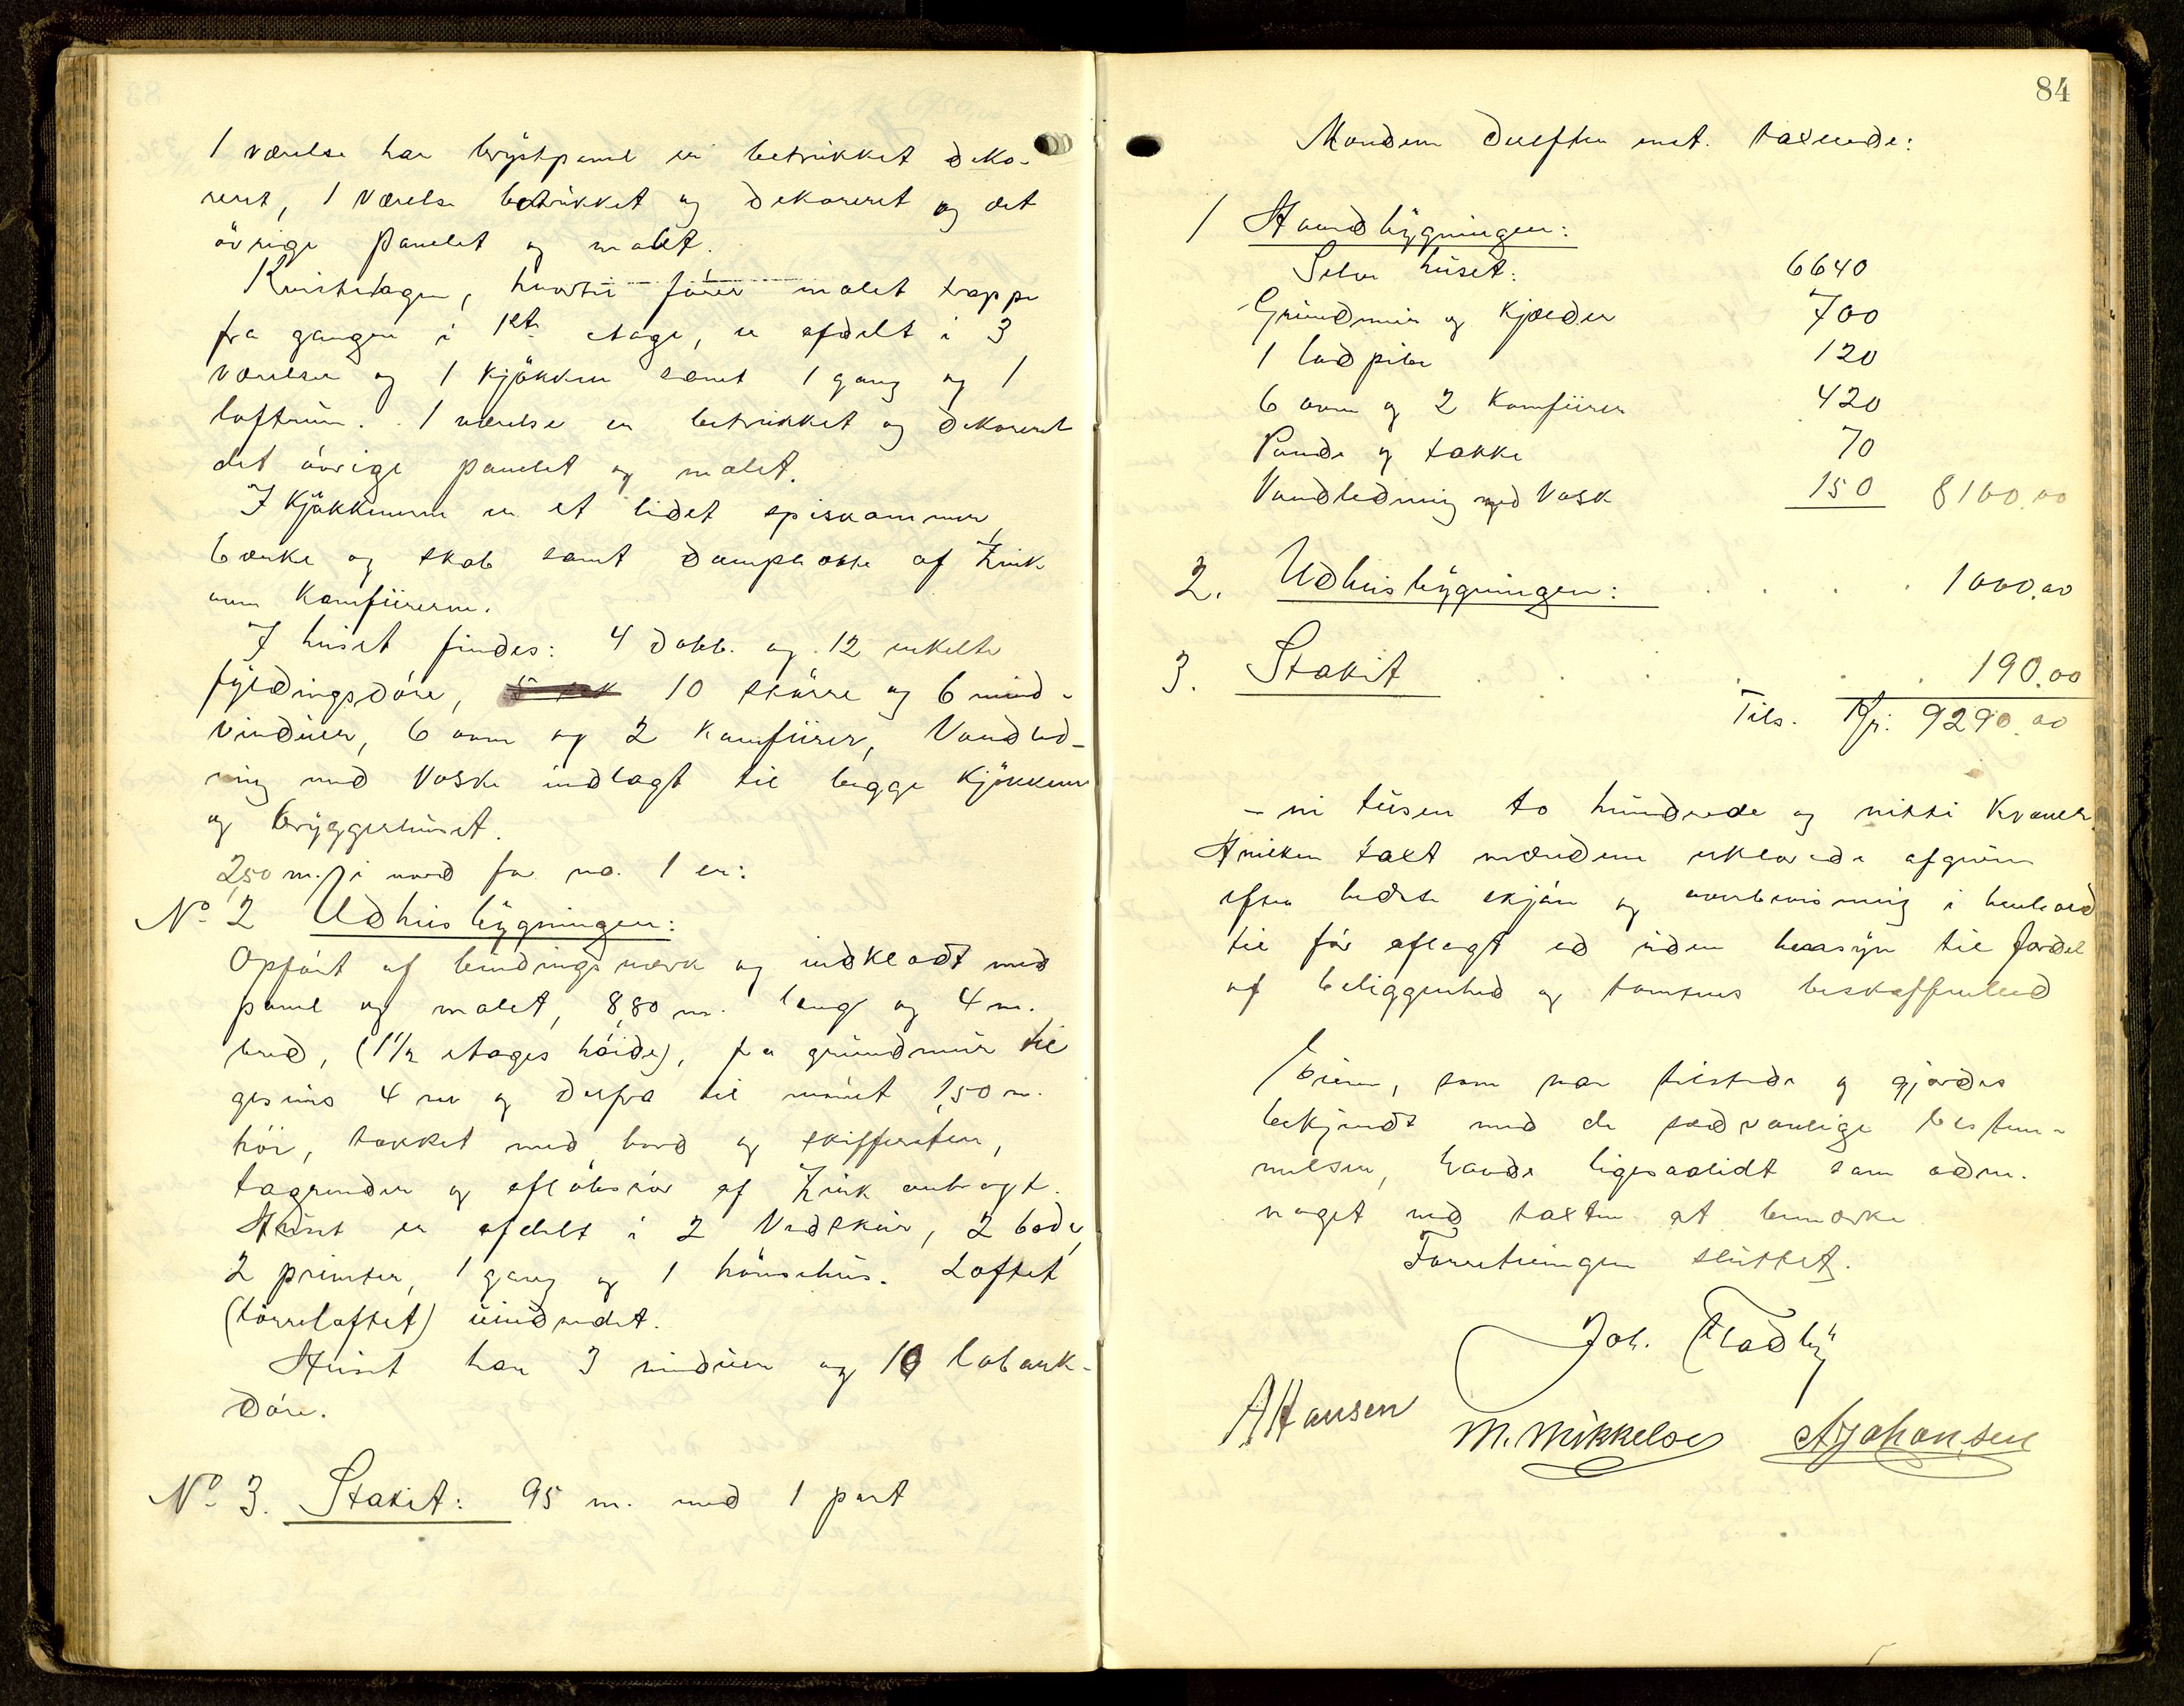 1 værelse har brystpanel er betrukket deko-
reret, 1 værelse betrukket og dekoreret og det
övrige panelet og malet.
Kvistetagen, hvortil förer malet trappe
fra gangen i 1ste etage, er afdelt i 3
værelser og 1 kjökken samt 1 gang og 1
loftrum. 1 værelse er betrukket og dekoreret
det övrige panelet og malet.
I kjökkenerne er et lidet spiskammer,
bænke og skab samt dampkasse af Zink
over komfürerne.
I huset findes: 4 dobb. og 12 enkelte
fyldingsdöre, 10 större og 6 mind-
vinduer, 6 ovne og 2 komfürer, Vandled-
ning med Vaske indlagt til begge kjökkener
og bryggerhuset.
2,50 m. i nord for no. 1 er:
No 2 Udhusbygningen:
Opfört af bindingsværk og indklædt med
panel og malet, 8,80 m. lang og 4 m.
bred, (1 1/2 etages höide), fra grundmur til
gesims 4 m og derfra til mönet 1,50 m.
höi, tækket med bord og skiffersten,
tagrender og aflöbsrör af Zink anbragt.
Huset er afdelt i 2 Vedskur, 2 boder,
2 priveter, 1 gang og 1 hönsehus. Loftet
(törreloftet) uindredet.
Huset har 3 vinduer og 10 labank-
döre.
No 3. Stakit: 95 m. med 1 port
84
Mændene derefter enst. taxerede:
1 Hovedbygningen:
Selve huset: 6640
Grundmur og kjælder 700
1 ladpibe 120
6 ovne og 2 Komfürer 420
Pande og takke 70
Vandledning med Vask 150 8100.00
2. Udhusbygningen: . . . . 1000.00
3. Stakit . . . . . 190.00
Tils. Kr: 9290.00
- ni tusen to hundrede og nitti Kroner.
Hvilken taxt mændene erklærede afgiven
efter bedste skjön og overbevisning i henhold
til för aflagt ed uden hensyn til fordel
af beliggenhed og tomtens beskaffenhed
Eieren, som var tilstede og gjordes
bekjendt med de sædvanlige bestem-
melser, havde ligesaalidt som adm.
noget ved taxten at bemærke
Forretningen sluttet.
Joh. Fladby
A Hansen M. Mikkelsen A Johansen